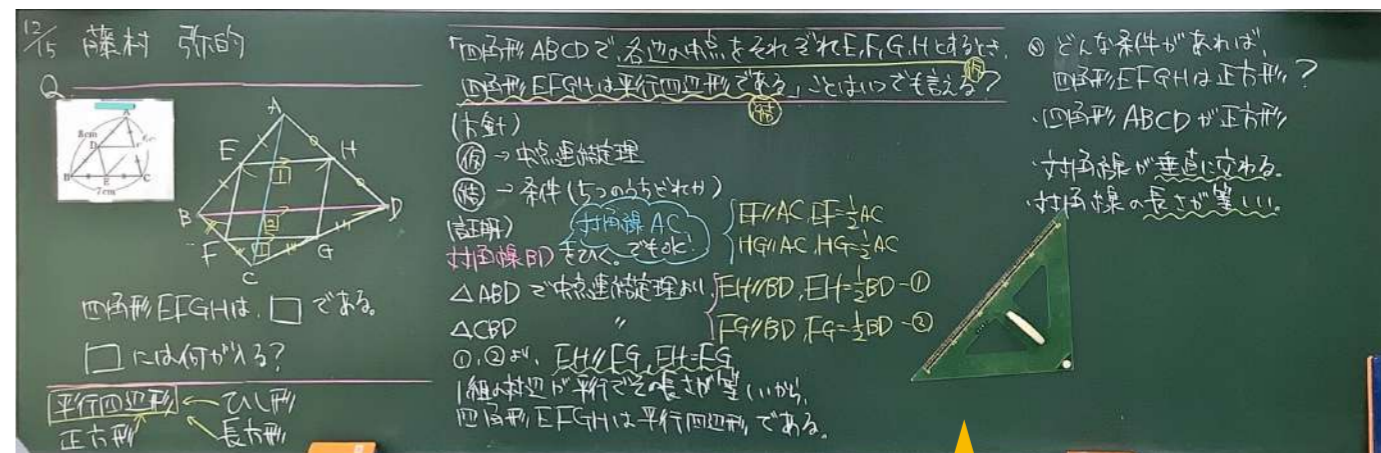 12/15 藤村
Q.
A
8cm
D
B
E
C
7cm
A
E
H
1
B
D
2
F
1
G
C
四角形EFGHは、□である。
□には何が入る?
平行四辺形 ← ひし形
正方形
長方形
「四角形ABCDで、各辺の中点をそれぞれE,F,G,Hとするとき、
仮
四角形EFGHは平行四辺形である」ことはいつでも言える?
結
(方針)
仮→中点連結定理
結→条件(5つのうちどれか)
(証明)
対角線AC
でもOK!
EF//AC, EF=1/2AC
HG//AC, HG=1/2AC
対角線BDをひく。
△ABDで中点連結定理より、EH//BD, EH=1/2BD-①
△CBD 〃 FG//BD, FG=1/2BD-②
①,②より、EH//FG, EH=FG
1組の対辺が平行でその長さが等しいから、
四角形EFGHは平行四辺形である。
どんな条件があれば、
四角形EFGHは正方形?
・四角形ABCDが正方形
・対角線が垂直に交わる。
・対角線の長さが等しい。